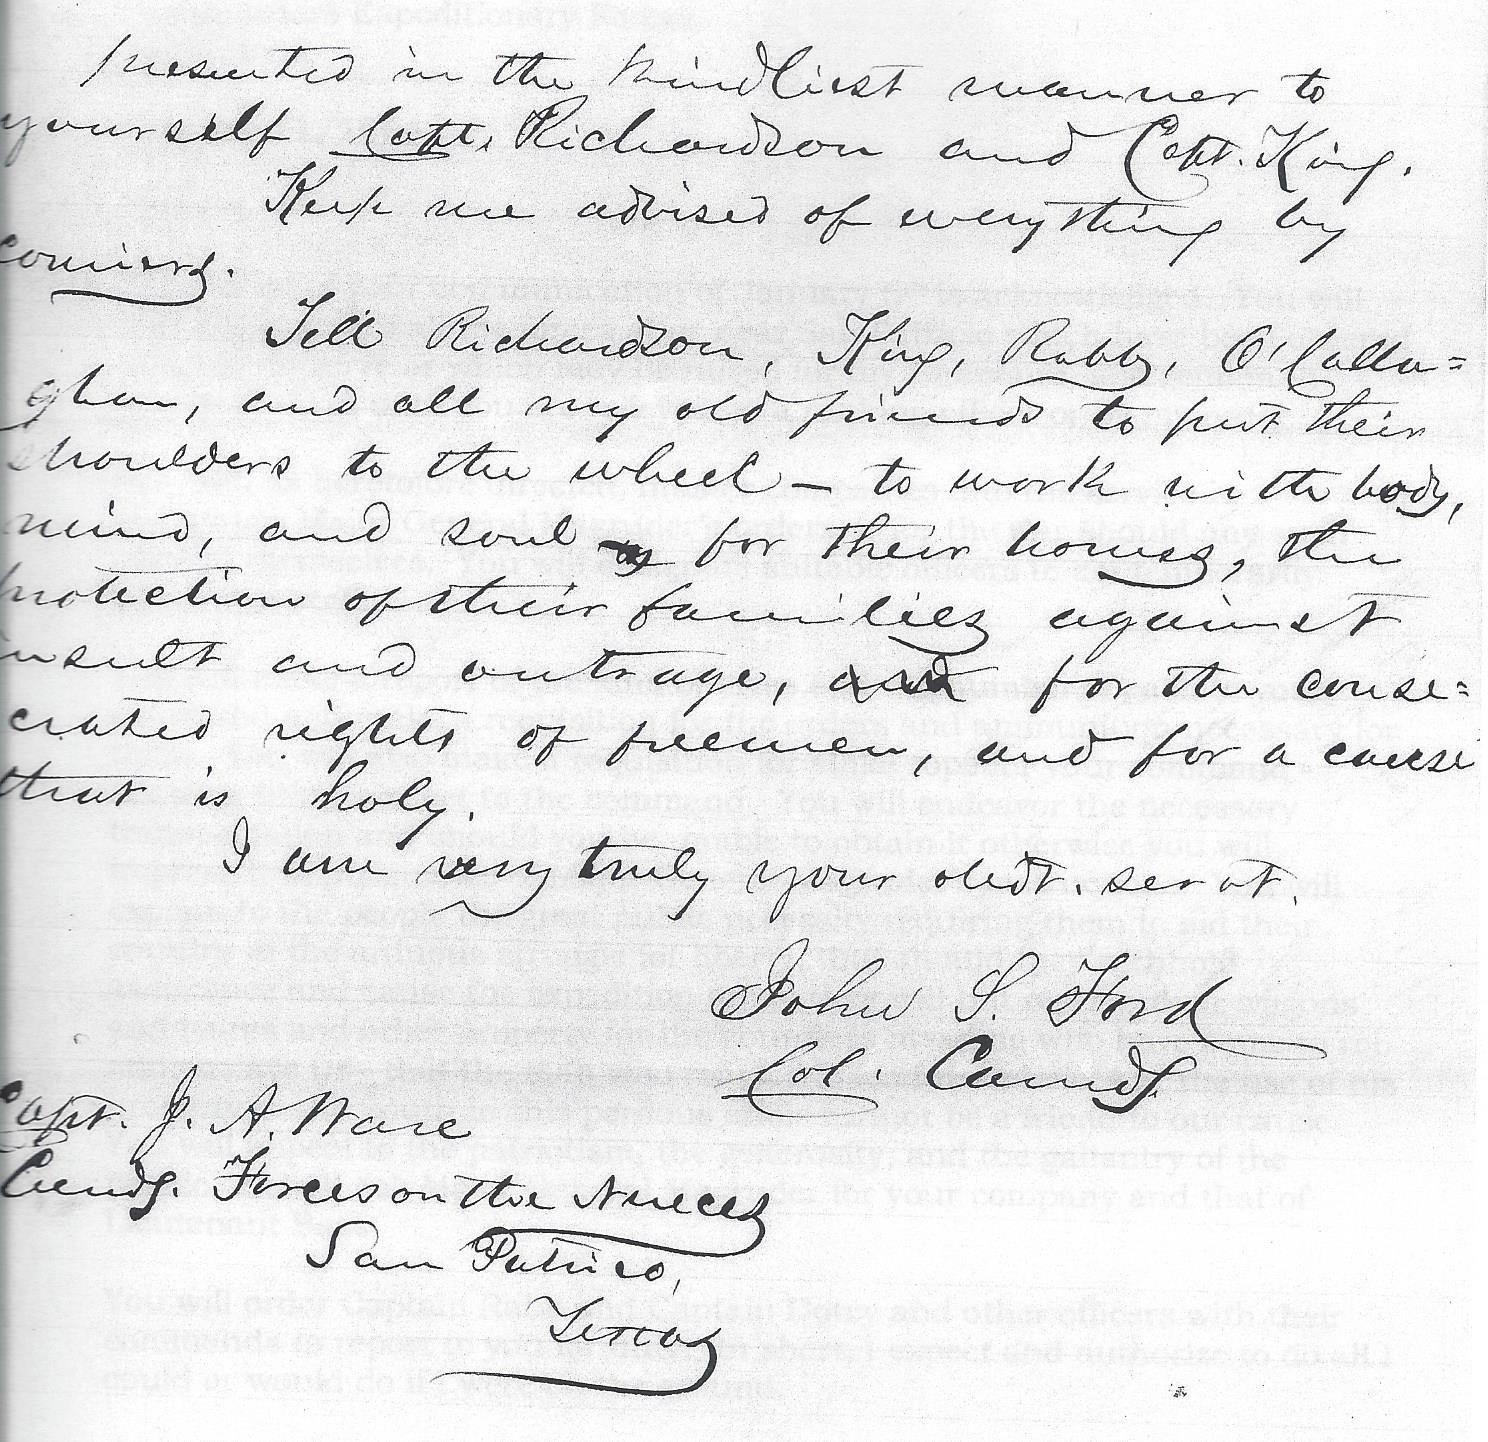 presented in the kindliest manner to
yourself Capt. Richardson and Capt. King.
Keep me advised of everything by
couriers.
Tell Richardson, King, Rabb, O'Calla=
ghan, and all my old friends to put their
shoulders to the wheel — to work with body,
mind, and soul for their homes, the
protection of their families against
insult and outrage, and for the conse=
crated rights of freemen, and for a cause
that is holy.
I am very truly your obdt. servt.
John S. Ford
Col. Comdg.
Capt. J. A. Ware
Comdg. Forces on the Nueces
San Patricio,
Texas